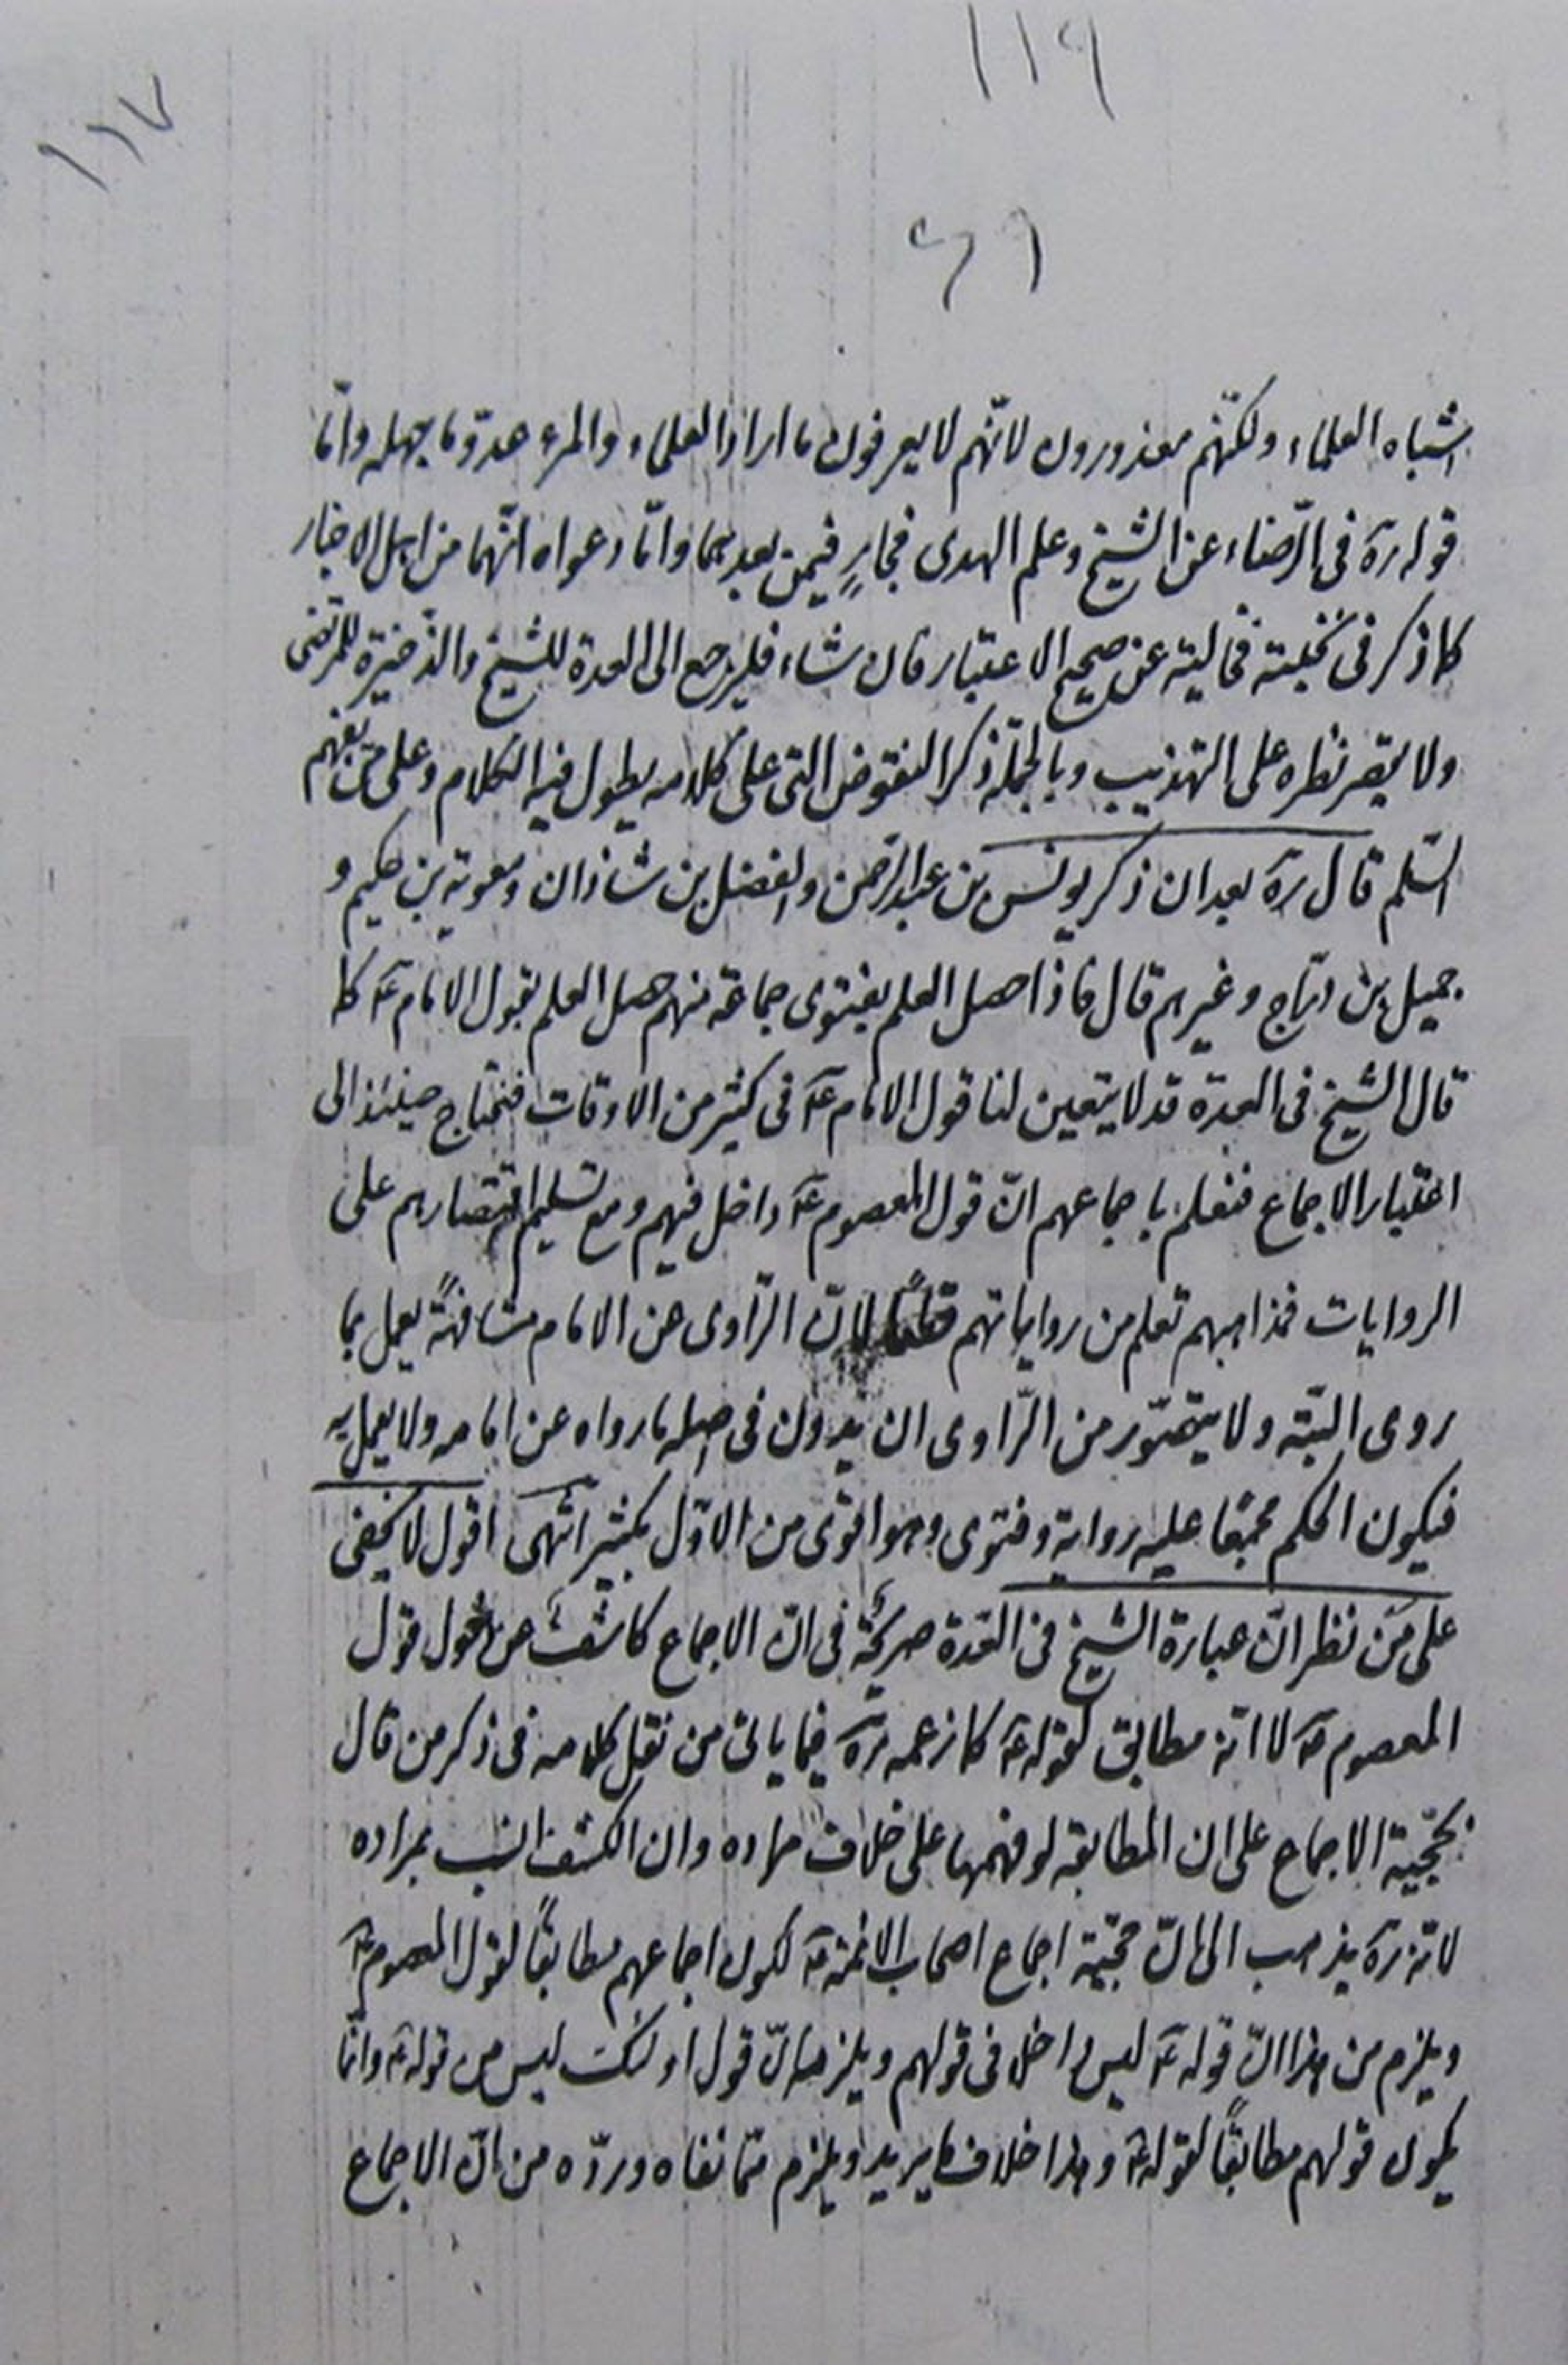 ١١٩
١١٧
٤٦١
اشباه العلماء ولكنّهم معذورون لانّهم لا يعرفون ما اراد العلماء والمرء عدوّ ما يجهله وامّا
قوله ره فى الرّضاء عن الشيخ وعلم الهدى فجارٍ فيمن بعدهما وامّا دعواه انّهما من اهل الاخبار
كما ذكر فى فخالية عن صحيح الاعتبار فان شاء فليرجع الى العدة للشيخ والذّخيرة للمرتضى
ولا يقصر نظره على التهذيب وبالجملة ذكر النقوض التى على كلامه يطول فيه الكلام وعلى من يفهم
السّلم قال ره بعد ان ذكر يونس بن عبد الرّحمن والفضل بن شاذان ومعوية بن حكيم و
جميل بن درّاج وغيرهم قال فاذا حصل العلم بفتوى جماعة منهم حصل العلم بقول الامام ع كما
قال الشيخ فى العدة قد لا يتعين لنا قول الامام ع فى كثير من الاوقات فنحتاج حينئذ الى
اعتبار الاجماع فنعلم باجماعهم انّ قول المعصوم ع داخل فيهم ومع تسليم اقتصارهم على
الروايات فمذاهبهم تعلم من رواياتهم قطعًا لانّ الرّاوى عن الامام مشافهةً يعمل بما
روى البتّه ولا يتصوّر من الرّاوى ان يدون فى اصله ما رواه عن امامه ولا يعمل به
فيكون الحكم مجمعًا عليه رواية وفتوى وهو اقوى من الاوّل بكثير انتهى اقول لا يخفى
على من نظر انّ عبارة الشيخ فى العدّة صريحة فى انّ الاجماع كاشف عن دخول قول
المعصوم ع لا انّه مطابق لقوله ع كما زعمه ره فيما ياتى من نقل كلامه فى ذكر من قال
بحجّية الاجماع على ان المطابقة لو فهمها على خلاف مراده وان الكشف انسب بمراده
لانّه ره يذهب الى انّ حجّية اجماع اصحاب الائمة ع لكون اجماعهم مطابقًا لقول المعصوم ع
ويلزم من هذا انّ قوله ع ليس داخل فى قولهم ويلزمه انّ قول اولئك ليس من قوله ع وانّما
يكون قولهم مطابقًا لقوله ع وهذا خلاف ما يريد ويلزم ممّا نفاه وردّه من انّ الاجماع